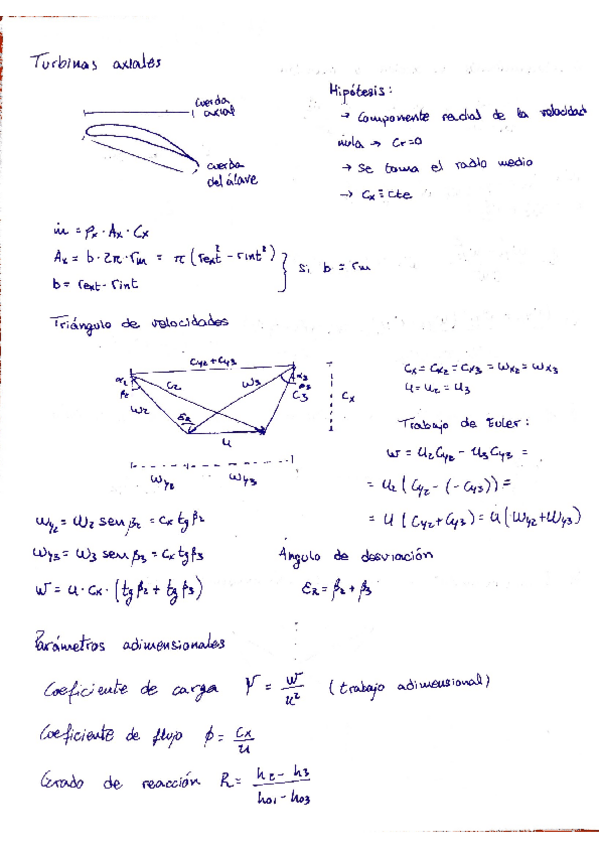 Turbinas axiales
cuerda axial
cuerda del álave
Hipótesis:
→ Componente radial de la velocidad
nula → Cr=0
→ Se toma el radio medio
→ Cx ≡ cte
ṁ = ρx · Ax · Cx
Ax = b · 2π · rm = π (rext² - rint²)
b = rext - rint
} si b = rm
Triángulo de velocidades
Cy2 + Cy3
α2
β2
C2
W3
α3
β3
C3
W2
εR
u
Cx
Wy2
Wy3
Cx = Cx2 = Cx3 = Wx2 = Wx3
U = U2 = U3
Trabajo de Euler:
W = U2Cy2 - U3Cy3 =
= U2 (Cy2 - (-Cy3)) =
= U (Cy2 + Cy3) = U (Wy2 + Wy3)
Wy2 = W2 sen β2 = Cx tg β2
Wy3 = W3 sen β3 = Cx tg β3
W = U · Cx · (tg β2 + tg β3)
Ángulo de desviación
εR = β2 + β3
Parámetros adimensionales
Coeficiente de carga Ψ = W/u² (trabajo adimensional)
Coeficiente de flujo ϕ = Cx/u
Grado de reacción R = h2 - h3/h01 - h03